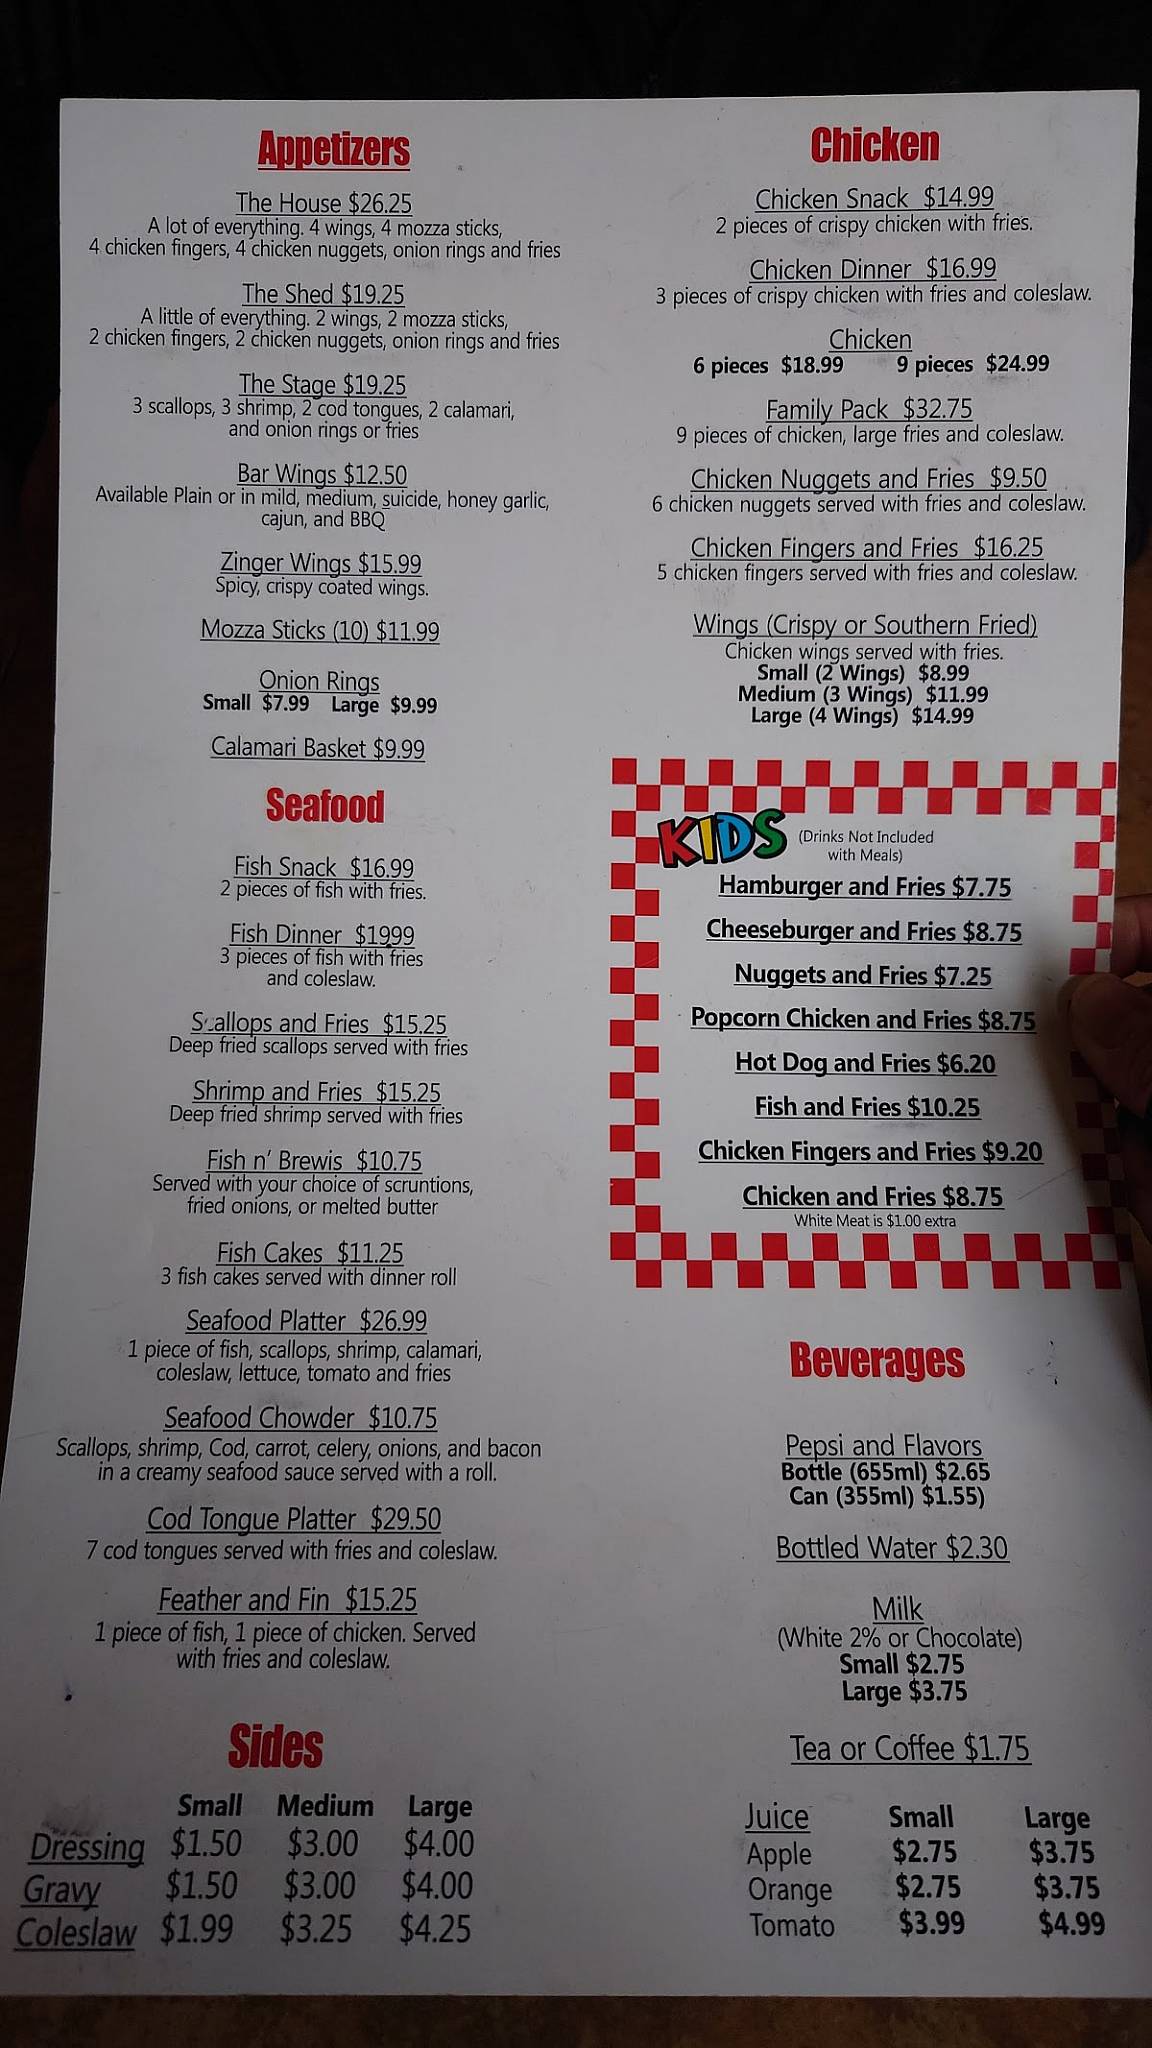 Appetizers
The House $26.25
A lot of everything. 4 wings, 4 mozza sticks,
4 chicken fingers, 4 chicken nuggets, onion rings and fries
The Shed $19.25
A little of everything. 2 wings, 2 mozza sticks,
2 chicken fingers, 2 chicken nuggets, onion rings and fries
The Stage $19.25
3 scallops, 3 shrimp, 2 cod tongues, 2 calamari,
and onion rings or fries
Bar Wings $12.50
Available Plain or in mild, medium, suicide, honey garlic,
cajun, and BBQ
Zinger Wings $15.99
Spicy, crispy coated wings.
Mozza Sticks (10) $11.99
Onion Rings
Small $7.99 Large $9.99
Calamari Basket $9.99
Seafood
Fish Snack $16.99
2 pieces of fish with fries.
Fish Dinner $19.99
3 pieces of fish with fries
and coleslaw.
Scallops and Fries $15.25
Deep fried scallops served with fries
Shrimp and Fries $15.25
Deep fried shrimp served with fries
Fish n' Brewis $10.75
Served with your choice of scruntions,
fried onions, or melted butter
Fish Cakes $11.25
3 fish cakes served with dinner roll
Seafood Platter $26.99
1 piece of fish, scallops, shrimp, calamari,
coleslaw, lettuce, tomato and fries
Seafood Chowder $10.75
Scallops, shrimp, Cod, carrot, celery, onions, and bacon
in a creamy seafood sauce served with a roll.
Cod Tongue Platter $29.50
7 cod tongues served with fries and coleslaw.
Feather and Fin $15.25
1 piece of fish, 1 piece of chicken. Served
with fries and coleslaw.
Sides
Small Medium Large
Dressing $1.50 $3.00 $4.00
Gravy $1.50 $3.00 $4.00
Coleslaw $1.99 $3.25 $4.25
Chicken
Chicken Snack $14.99
2 pieces of crispy chicken with fries.
Chicken Dinner $16.99
3 pieces of crispy chicken with fries and coleslaw.
Chicken
6 pieces $18.99 9 pieces $24.99
Family Pack $32.75
9 pieces of chicken, large fries and coleslaw.
Chicken Nuggets and Fries $9.50
6 chicken nuggets served with fries and coleslaw.
Chicken Fingers and Fries $16.25
5 chicken fingers served with fries and coleslaw.
Wings (Crispy or Southern Fried)
Chicken wings served with fries.
Small (2 Wings) $8.99
Medium (3 Wings) $11.99
Large (4 Wings) $14.99
KIDS (Drinks Not Included
with Meals)
Hamburger and Fries $7.75
Cheeseburger and Fries $8.75
Nuggets and Fries $7.25
Popcorn Chicken and Fries $8.75
Hot Dog and Fries $6.20
Fish and Fries $10.25
Chicken Fingers and Fries $9.20
Chicken and Fries $8.75
White Meat is $1.00 extra
Beverages
Pepsi and Flavors
Bottle (655ml) $2.65
Can (355ml) $1.55)
Bottled Water $2.30
Milk
(White 2% or Chocolate)
Small $2.75
Large $3.75
Tea or Coffee $1.75
Juice Small Large
Apple $2.75 $3.75
Orange $2.75 $3.75
Tomato $3.99 $4.99